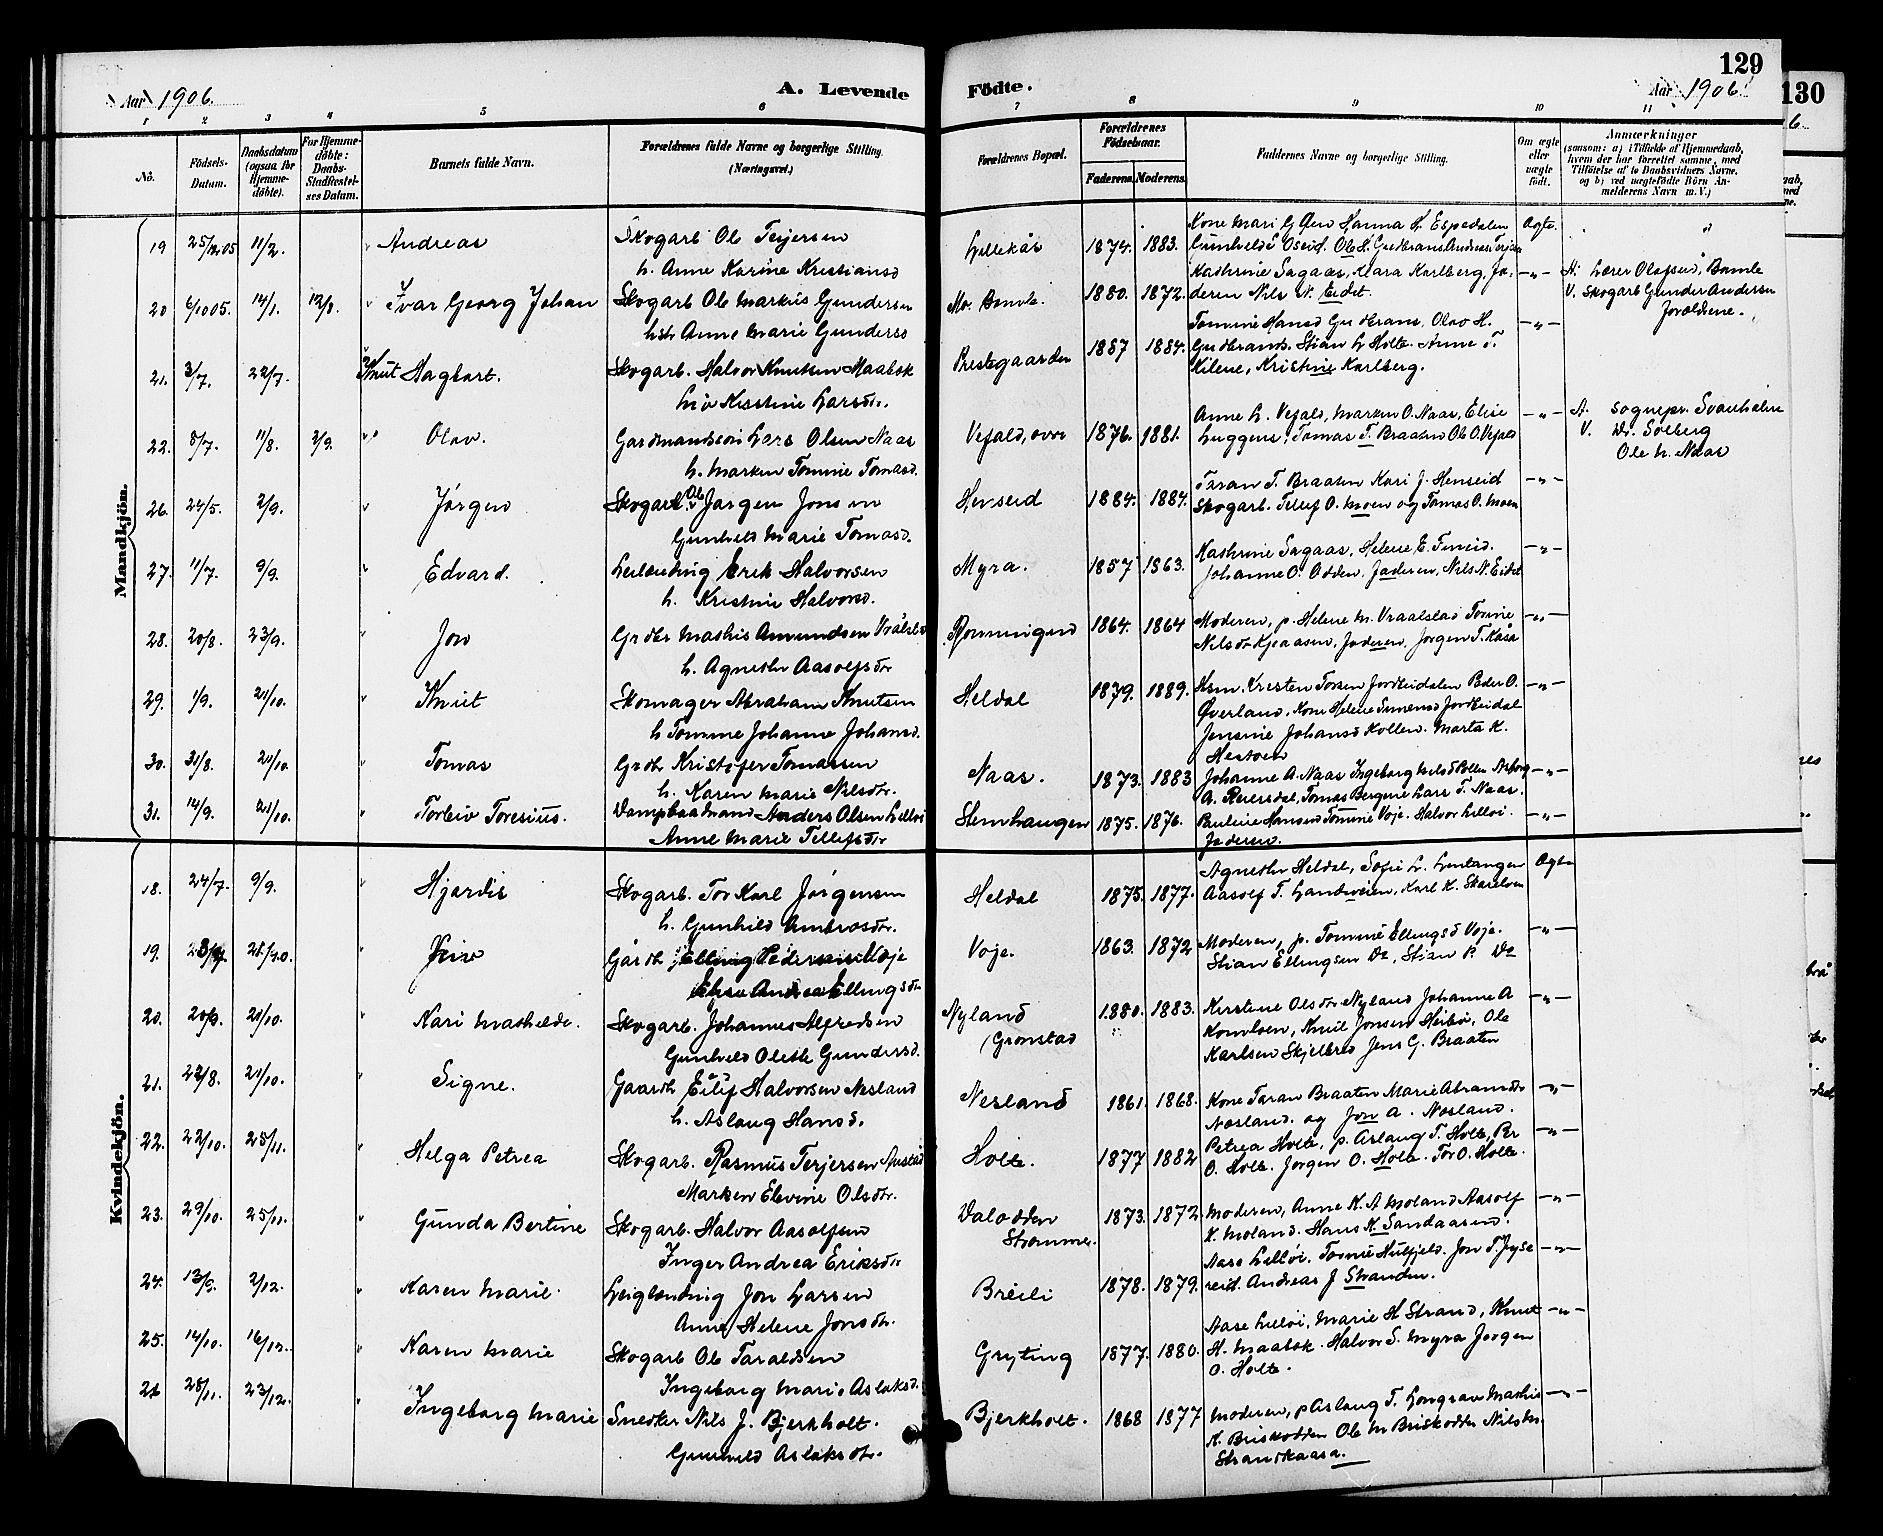 129
130
Aar 1906.
A. Levende Födte.
Aar 1906
6
1 2 3 4 5 6 7 8 9 10 11
No.
Födsels-Datum.
Daabsdatum (ogsaa for Hjemmedöbte).
For Hjemmedöbte: Daabs-Stadfæstelses Datum.
Barnets fulde Navn.
Forældrenes fulde Navne og borgerlige Stilling. (Næringsvei.)
Forældrenes Bopæl.
Forældrenes Födselsaar.
Faderens. Moderens.
Faddernes Navne og borgerlige Stilling.
Om ægte eller uægte födt.
Anmærkninger (saasom: a) i Tilfælde af Hjemmedaab, hvem der har forrettet samme, med Tilföielse af to Daabsvidners Navne, og b) ved uægtefödte Börn Anmelderens Navn m. V.)
Mandkjön.
19 25/12 05 11/2. Andreas Skogarb Ole Terjersen
h. Anne Karine Kristiansd Lillekås 1874. 1883. Ægte.
20 6/10 05. 14/1. 12/1. Ivar Georg Johan Skogarb Ole Markus Gundersen
hstr Anne Marie Gundersd Mo. Bamle. 1880. 1872. Kathrine Sagaas, Klara Karlberg, Faderen Nils N. Eidet. —"— H: Lærer Olafsen, Bamle
V. Skogarb Gunder Andersen
Forældrene.
21. 3/7. 22/7. Knut Hagbart. Skogarb. Halvor Knutsen Maabæk
Kristine Larsdr. Prestegaarden 1887 1884. Tomine Hansd Gudbrans. Olav H.
Gudbrands. Stian L Holte. Anne T.
Kilene, Kristine Karlberg. —"—
22. 8/7. 11/8. 2/9. Olav. Gardmandssön Lars Olsen Naas
h. Marken Tomine Tomasd. Vefald, øvre 1876. 1881. Anne L. Vefald, Marken O. Naas, Elise
Tomas T. Braaten Ole O. Vefald —"— A. Sognepr. Svanholm
V. Dr. Solberg
Ole N. Naas
26. 24/5. 2/9. Jörgen Skogarb. Ole Jörgen Jonsen
Gunhild Marie Tomasd. Henseid 1884. 1884. Taran T. Braaten Kari J. Henseid
Skogarb. Tellef O. Moen og Tomas O. Moen —"—
27. 11/7. 9/9. Edvard. Leilænding Erik Halvorsen
h. Kristine Halvorsd. Myra. 1857 1863. Kathrine Sagaas, Helene E.
Johanne O. Odden, Faderen, Nils N. Eidet —"—
28. 20/8. 23/9. Jon Grdbr Mathis Amundsen Vrålstad
h. Agnethe Aasolfsdr Rönningen 1864. 1864 Moderen, p. Helene M. Vraalstad Tomine
Nilsdr Kjeaasen, Faderen, Jörgen T. Kåsa —"—
29. 1/9. 21/10. Knut Skomager Abraham Knutsen
h Tomine Johanne Johansd. Heldal 1879. 1889. Hsm. Kresten Torsen Jordkidalen Peder O.
Överland, Kone Helene Simensd Jordkidal
Jensine Johansd Kollen. Marta K.
Hestöen —"—
30. 31/8. 21/10. Tomas Grdbr Kristofer Tomassen
h. Karen Marie Nilsdr. Naas. 1873. 1883 Johanne A. Naas Ingeborg Nilsd Pollen
A. Reiersdal, Tomas Bergene Lars T. Naas. —"—
31. 14/9. 21/10. Torleiv Toresius. Dampbaadmand Anders Olsen Lillöi
Anne Marie Tellefsdr Stenhaugen 1875. 1876. Pauline Hansen Tomine Voje. Halvor Lillöi.
Faderen. —"—
Kvindekjön.
18. 24/7. 9/9. Hjördis Skogarb. Tor Karl Jörgensen
h. Gunhild Ambrosdr. Heldal 1875. 1877. Agnethe Heldal, Sofie L. Lintangen
Aasolf T. Landsveien, Karl K. Ægte
19. 21/10. Gårdbr Elling Pedersen Voje
Andrea Ellingsdr Voje. 1863. 1872 Moderen, p. Tomine Ellingsd Voje.
Stian Ellingsen Do, Stian P. Do —"—
20. 20/9. 21/10. Nari Mathilde. Skogarb. Johannes Alfredsen
Gunhild Oleste Gundersd. Nyland
Grönstad 1880. 1883. Kirstine Olsdr Nyland Johanne A
Komloen, Knut Jonsen Heibö, Ole
Karlsen Skjelbred Jens G. Braaten —"—
21. 22/8. 21/10. Signe. Gaardbr Eilif Halvorsen Nesland
h. Aslaug Hansd. Nesland 1861. 1868. Kone Taran Braaten Marie Abramsdr
Nesland. og Jon A. Nesland. —"—
22. 22/10. 25/11. Helga Petrea Skogarb. Rasmus Terjersen
Marken Elevine Olsdr. Holte. 1877 1882 Petrea Holte, p. Aslaug T. Holte, Per
O. Holte. Jörgen O. Holte. Tor O. Holte. —"—
23. 29/10. 25/11. Gunda Bertine Skogarb. Halvor Aasolfsen
Inger Andrea Eriksdr. Valodden
Strömme. 1873. 1872. Moderen, Anne K. A Moland Aasolf
K. Moland. Hans K. Sandaasen. —"—
24. 13/9. 2/12. Karen Marie. Leiglænding Jon Larsen
Anne Helene Jonsdr. Breili 1878. 1879. Aase Lillöi. Tomine Hulfjeld. Jon T.
Andreas J Stranden. —"—
25. 14/10. 16/12. Karen Marie Skogarb Ole Taraldsen
Ingeborg Marie Aslaksd. Gryting 1877. 1880. Aase Lillöi, Marie H Strand, Knut
H. Maabæk. Halvor S. Myra Jörgen
O. Holte. —"—
28/11. 23/12. Ingeborg Marie Smeder Nils J. Bjerkholt.
Gunhild Aslaksdr. Bjerkholt. 1868 1877 Moderen, p Aslaug T. Longran Mathis
K. Briskodden Ole M Briskodden Nils M.
Strandkaasa. —"—